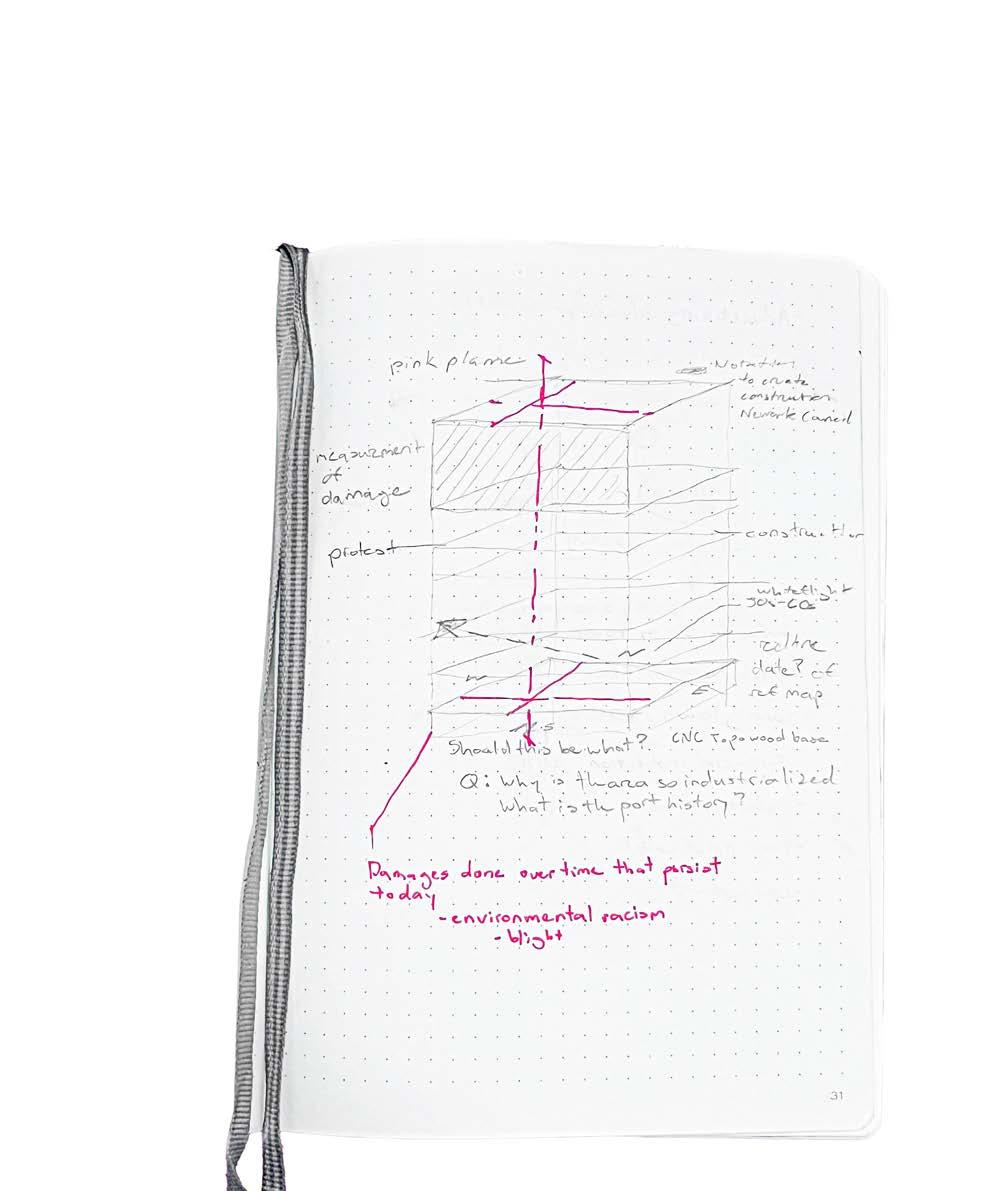 pink plane
Notation
to create
construction
Newark Council
measurment
of
damage
protest
construction
whiteflight
50s-60s
redline
date? of
ref map
W
E
N
S
Should this be what?
CNC Topo wood base
Q: Why is th area so industrialized
What is th port history?
Damages done over time that persist
today
- environmental racism
- blight
31